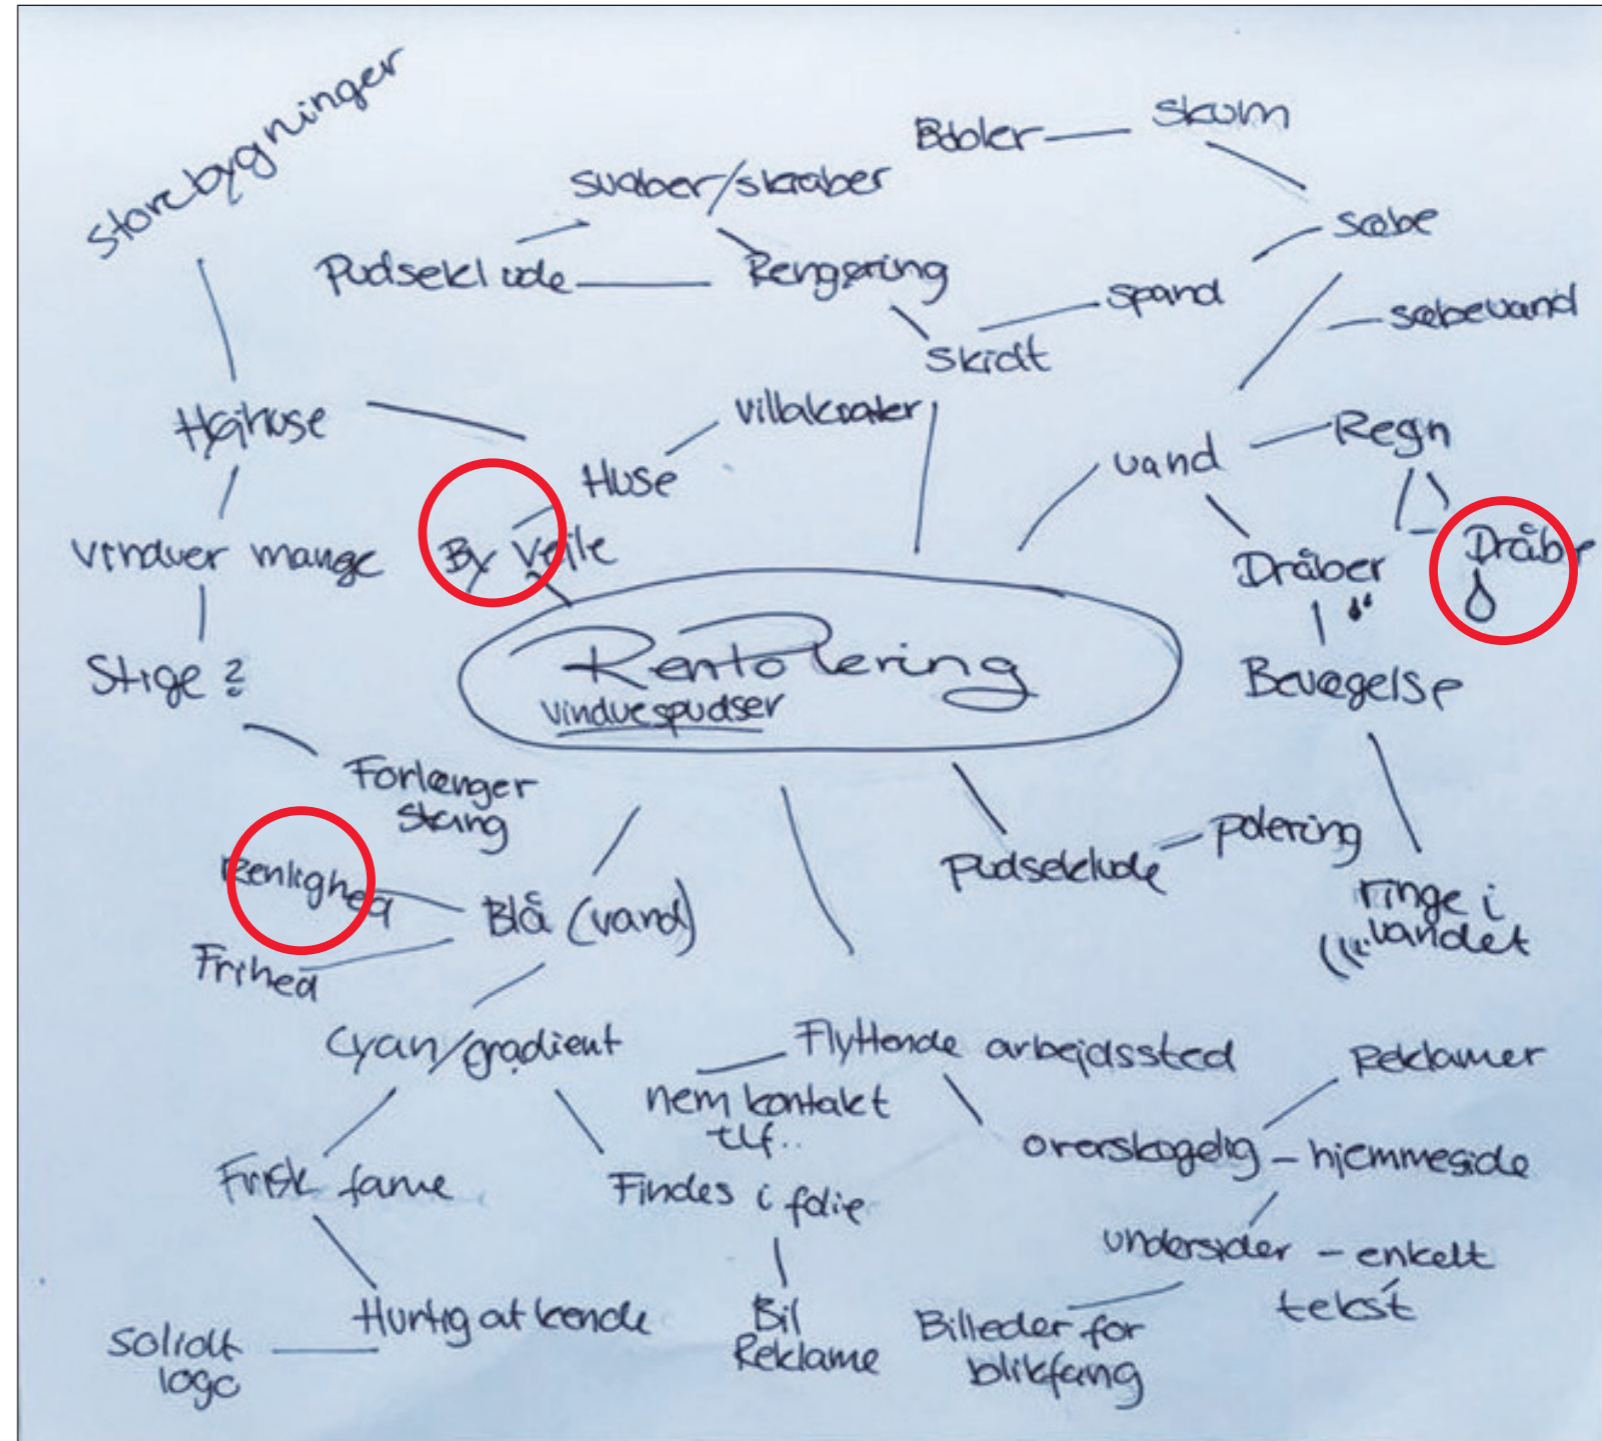 Store bygninger
Bobler
Skum
svaber/skraber
sæbe
Pudseklude
Rengøring
spand
sæbevand
Skidt
Højhuse
villakvater
Regn
Huse
vand
vinduer mange
By Vejle
Dråber
Dråbe
Rentolering
vinduespudser
Stige ?
Bevægelse
Forlænger
stang
polering
pudseklude
Renlighed
Blå (vand)
ringe i
vandet
Frihed
Cyan/gradient
Flyttende arbejdssted
Reklamer
nem kontakt
tlf..
overskuelig - hjemmeside
Frisk farve
Findes i folie
undersider - enkelt
tekst
Hurtig at kende
Bil
Reklame
Billeder for
blikfang
solidt
logo